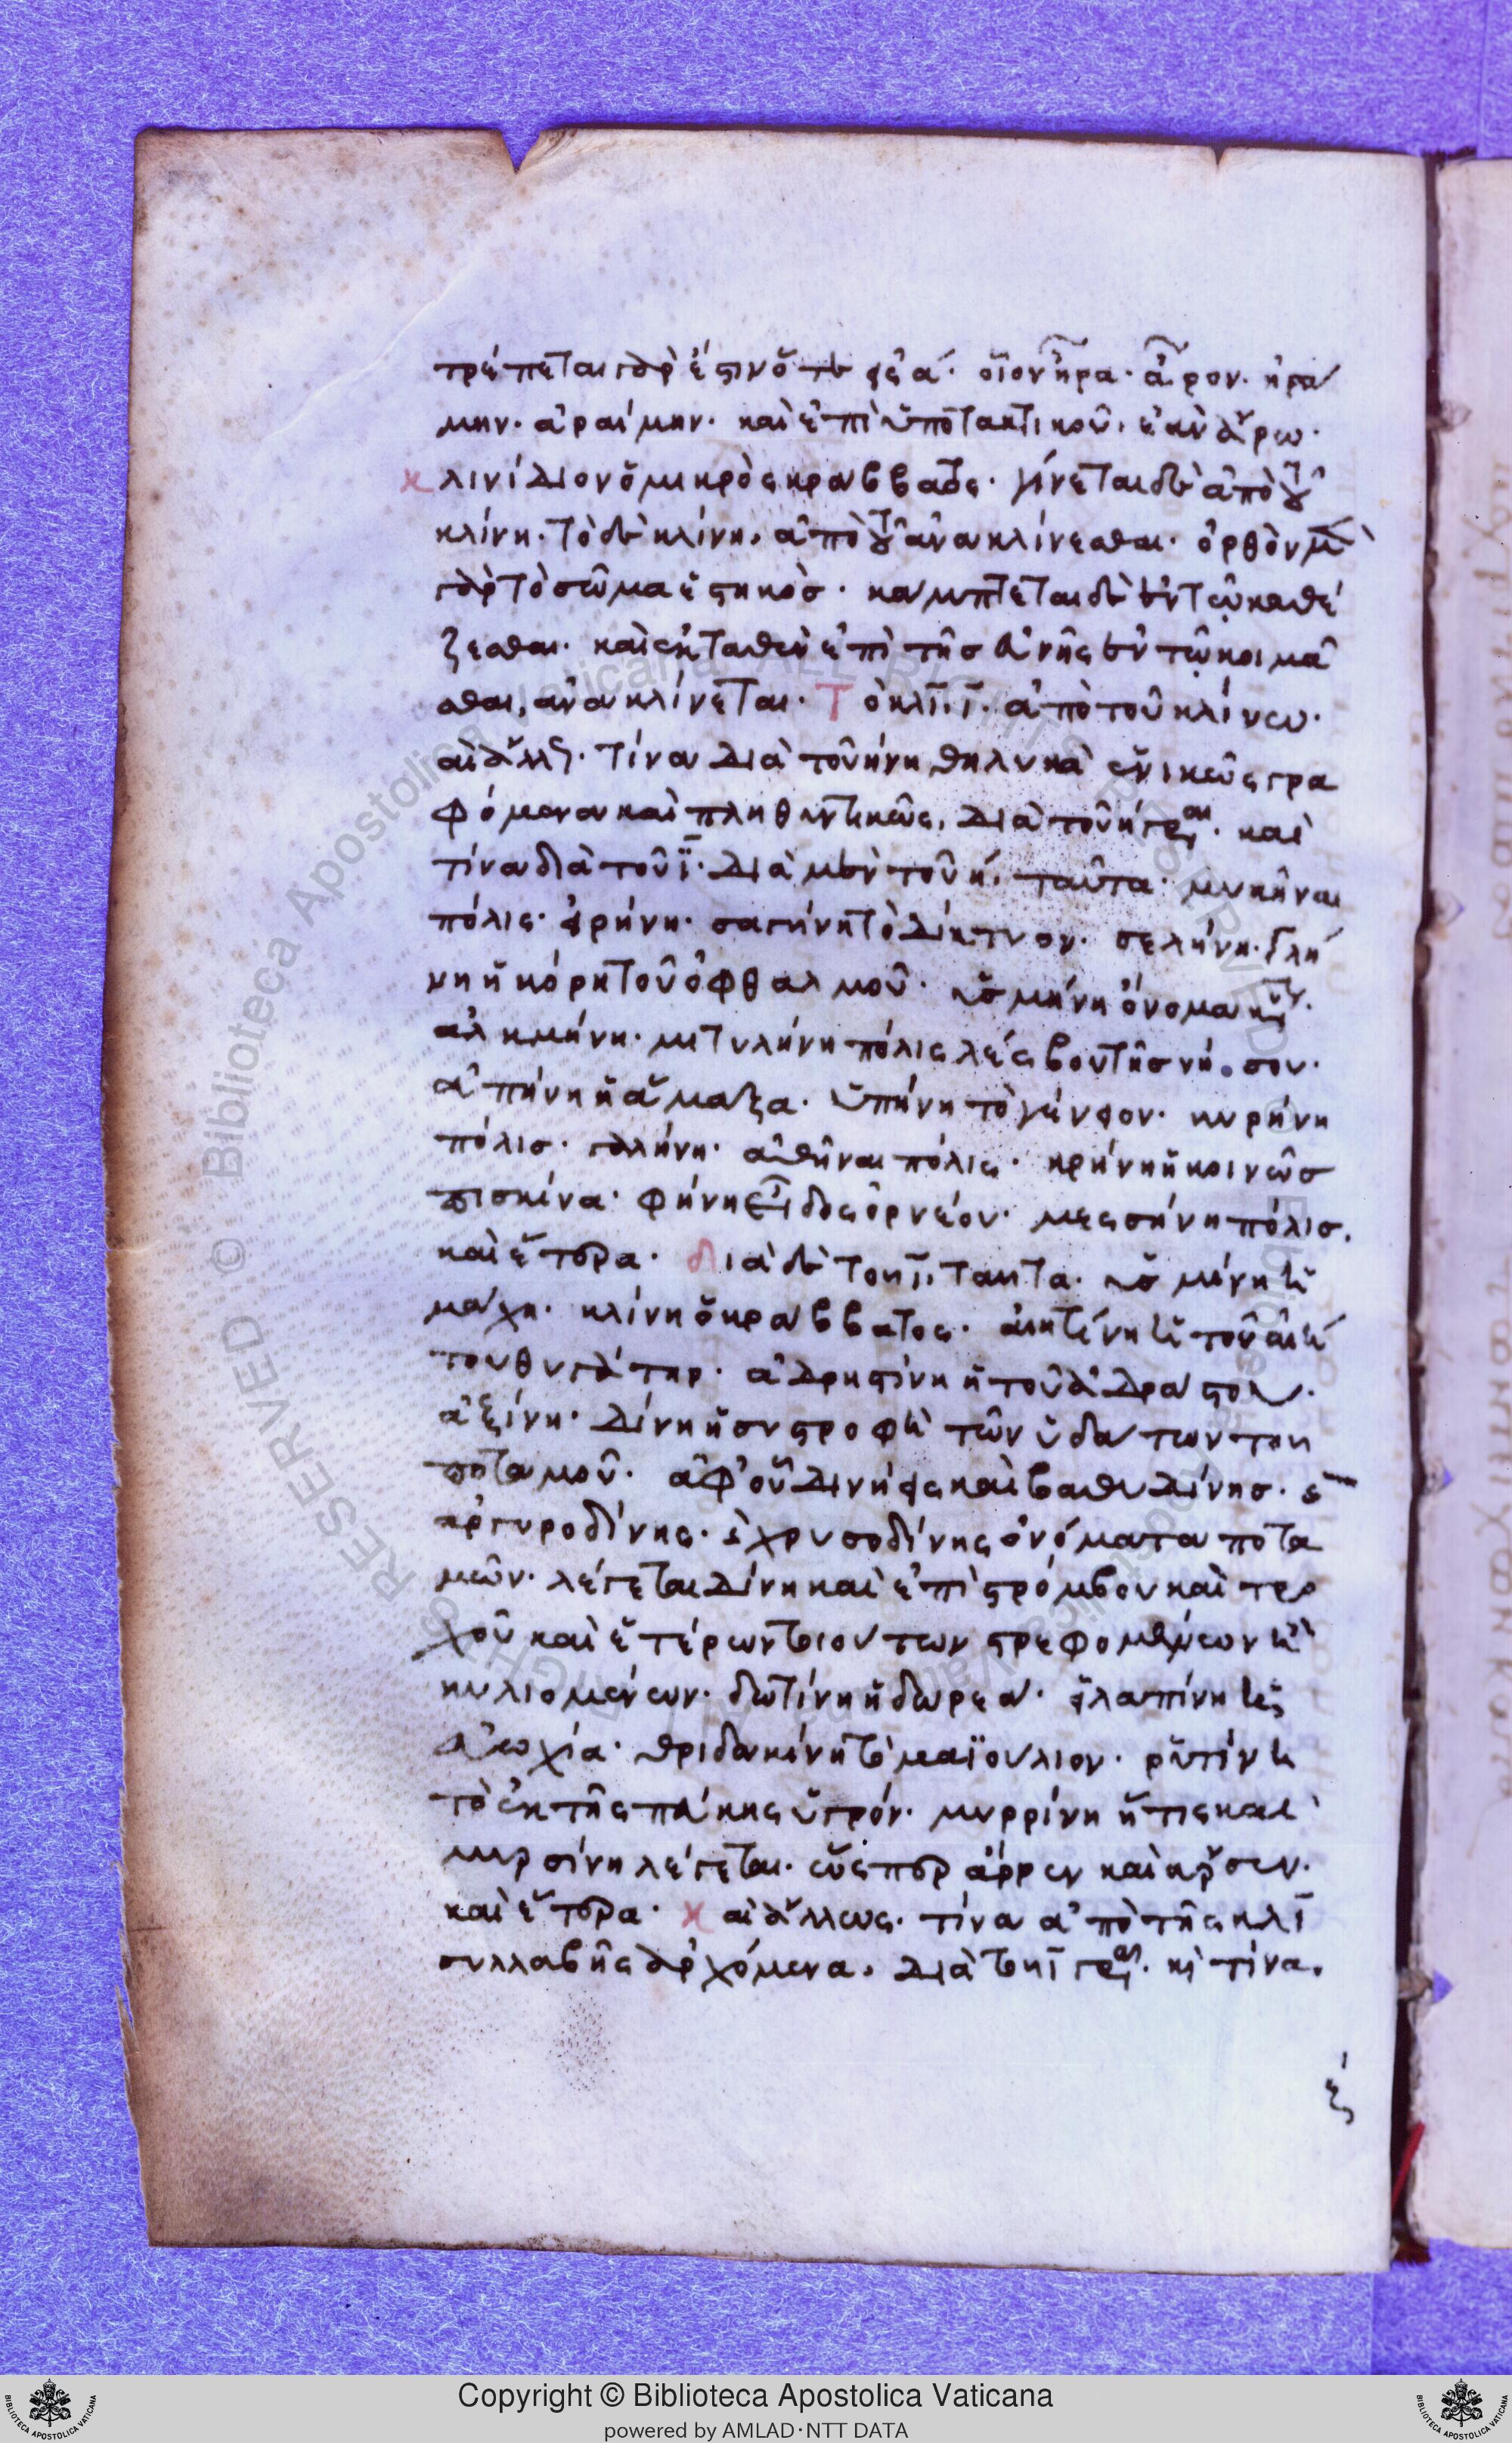 τρέπεται γὰρ ἔστιν ὅτε εἰς ᾱ· οἷον ἦρα· ἆρον· ἠρά
μην· ἀραίμην· καὶ ἐπὶ ὑποτακτικοῦ· ἐὰν ἄρω·
κλινίδιον ὁ μικρὸς κράββατος· γίνεται δὲ ἀπὸ τοῦ
κλίνη· τὸ δὲ κλίνη, ἀπὸ τοῦ ἀνακλίνεσθαι· ὀρθὸν μὲν
γὰρ τὸ σῶμα ἑστηκὸς· κάμπτεται δὲ ἐν τῷ καθέ
ζεσθαι· καὶ ἐκταθὲν ἐπὶ τῆς εὐνῆς ἐν τῷ κοιμᾶ
σθαι, ἀνακλίνεται· Τὸ κλῑ ῑ· ἀπὸ τοῦ κλίνω·
καὶ ἄλλως· τίνα διὰ τοῦ ήνη θηλυκὰ ἑνικῶς γρα
φόμενα καὶ πληθυντικῶς, διὰ τοῦ η γράφεται· καὶ
τίνα διὰ τοῦ ϊ· διὰ μὲν τοῦ η, ταῦτα· μυκῆναι
πόλις· εἰρήνη· σαγήνη τὸ δίκτυον· σελήνη· γλή
νη ἡ κόρη τοῦ ὀφθαλμοῦ· ἰσμήνη ὄνομα κύριον·
ἀλκμήνη· μιτυλήνη πόλις λέσβου τῆς νήσου·
ἀπήνη ἡ ἅμαξα· ὑπήνη τὸ γένειον· κυρήνη
πόλις· γαλήνη· ἀθῆναι πόλις· κρήνη ἡ κοινῶς
πισκίνα· φήνη εἶδος ὀρνέου· μεσσήνη πόλις.
καὶ ἕτερα· διὰ δὲ τοῦ ῑ, ταῦτα· ὑσμίνη ἡ
μάχη· κλίνη ὁ κράββατος· αἰητίνη ἡ τοῦ αἰή
του θυγάτηρ· ἀδρηστίνη ἡ τοῦ ἀδράστου·
ἀξίνη· δίνη ἡ συστροφὴ τῶν ὑδάτων τοῦ
ποταμοῦ· ἀφ' οὗ δινήεις καὶ βαθυδίνης·
ἀργυροδίνης· χρυσοδίνης ὀνόματα ποτα
μῶν· λέγεται δίνη καὶ ἐπὶ στρόμβου καὶ τρο
χοῦ καὶ ἑτέρων τοιούτων στρεφομένων ἢ
κυλιομένων· δωτίνη ἡ δωρεά· εἰλαπίνη ἡ
εὐωχία· θριδακίνη τὸ μαϊούλιον· ῥητίνη
τὸ ἐκ τῆς πεύκης ὑγρόν· μυρρίνη ἥτις καὶ
μυρσίνη λέγεται· ὥσπερ ἄρρεν καὶ ἄρσεν·
καὶ ἕτερα· καὶ ἄλλως· τίνα ἀπὸ τῆς κλῑ
συλλαβῆς ἀρχόμενα, διὰ τοῦ ῑ γράφεται· καὶ τίνα.